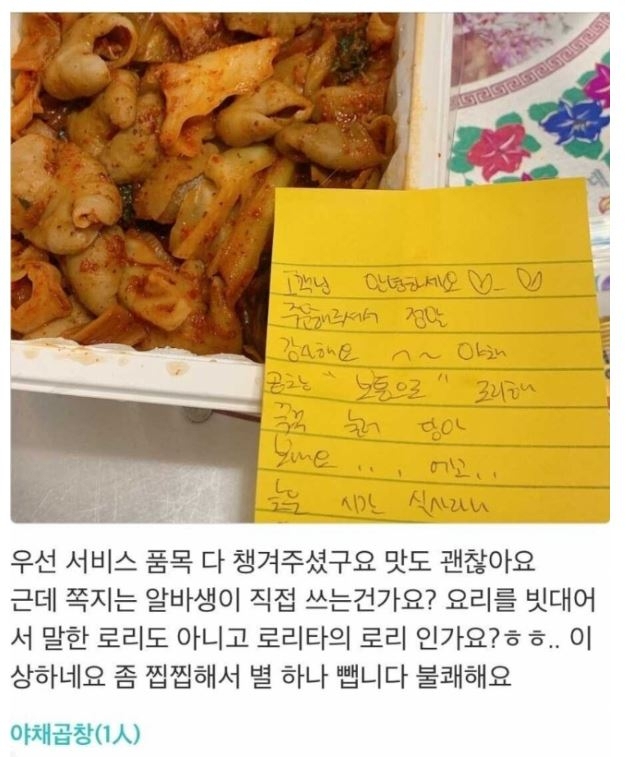 고객님 안녕하세요 ♡_♡
주문해주셔서 정말
감사해요 ^~ 야채
곱창 "보통으로" 조리해
꾹꾹 눌러 담아
보내요 . . , 에고 . .
늦은 시간 식사라니
우선 서비스 품목 다 챙겨주셨구요 맛도 괜찮아요
근데 쪽지는 알바생이 직접 쓰는건가요? 요리를 빗대어
서 말한 로리도 아니고 로리타의 로리 인가요?ㅎㅎ.. 이
상하네요 좀 찝찝해서 별 하나 뺍니다 불쾌해요
야채곱창(1人)